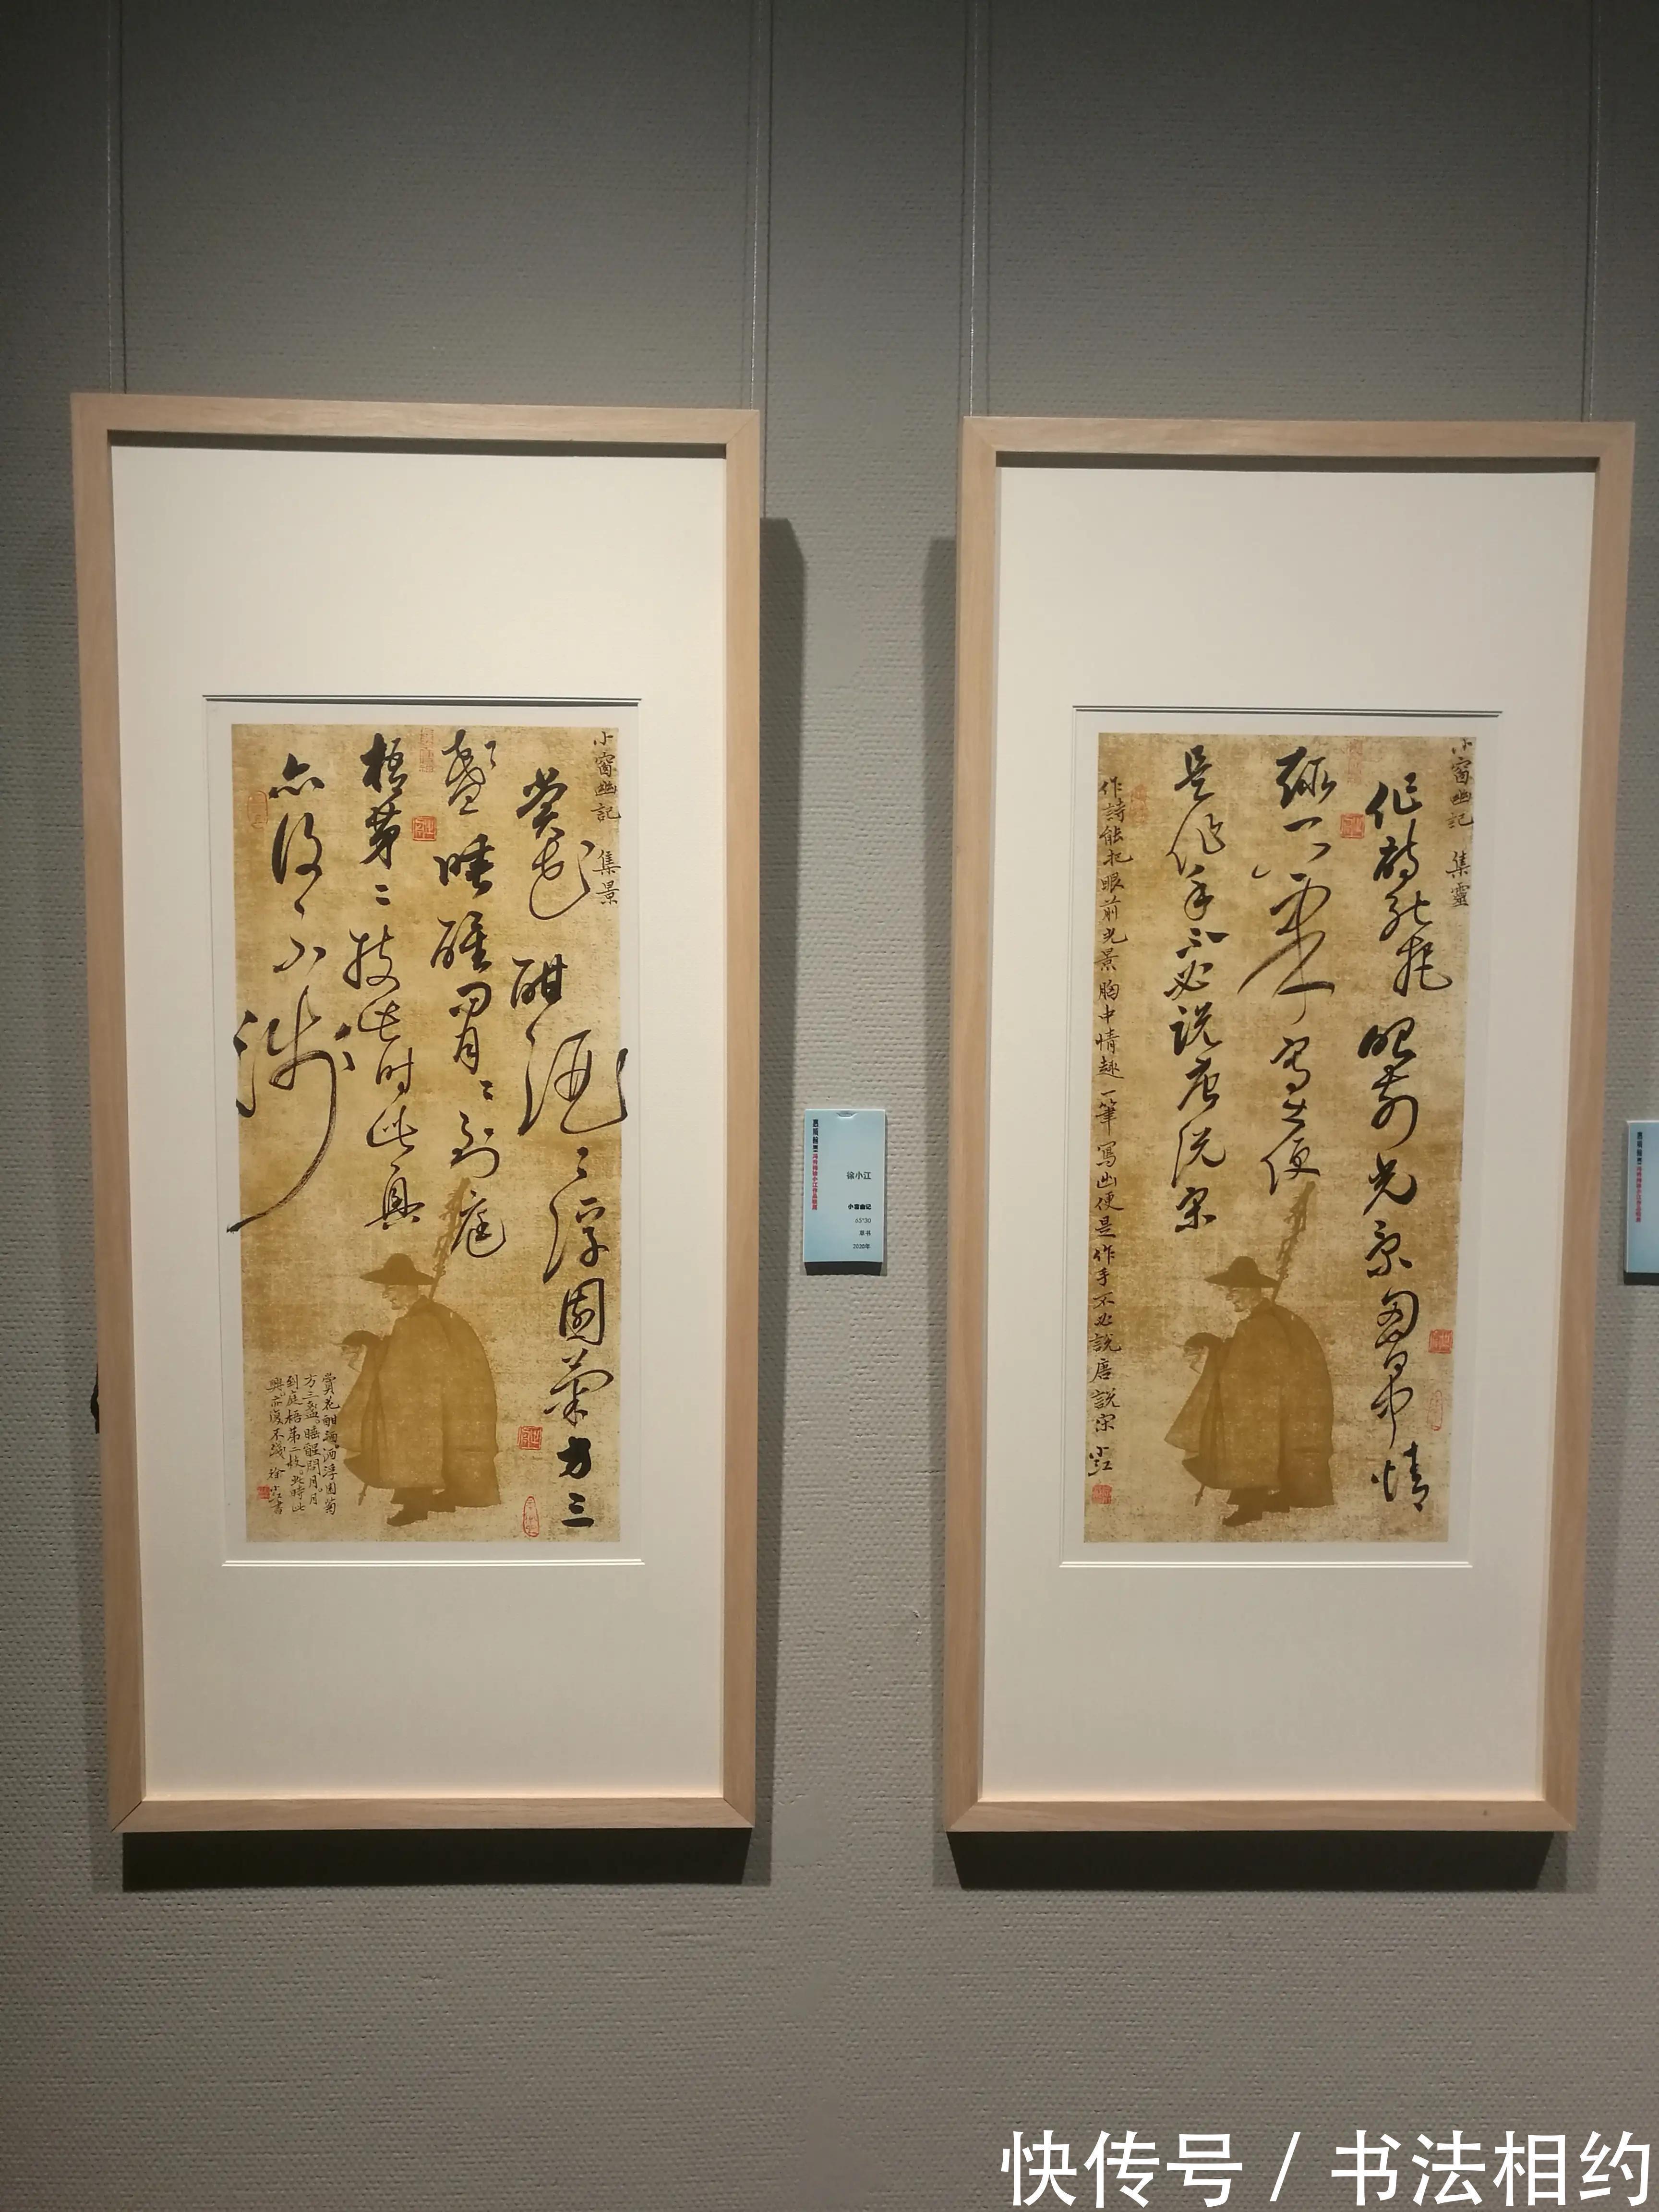 小窗幽記 集景
賞花酣酒〻浮園菊方三
盞睡醒問月〻到庭
梧第二枝此時此興
亦復不淺
賞花酣酒酒浮園菊
方三盞睡醒問月月
到庭梧第二枝此時此
興亦復不淺 徐小江書
徐小江
小窗幽记
65*30
草书
2020年
小窗幽記 集靈
作詩能把眼前光景胸中情
趣一筆寫出便
是作手不必説唐説宋
作詩能把眼前光景胸中情趣一筆寫出便是作手不必説唐説宋 小江
快传号 / 书法相约